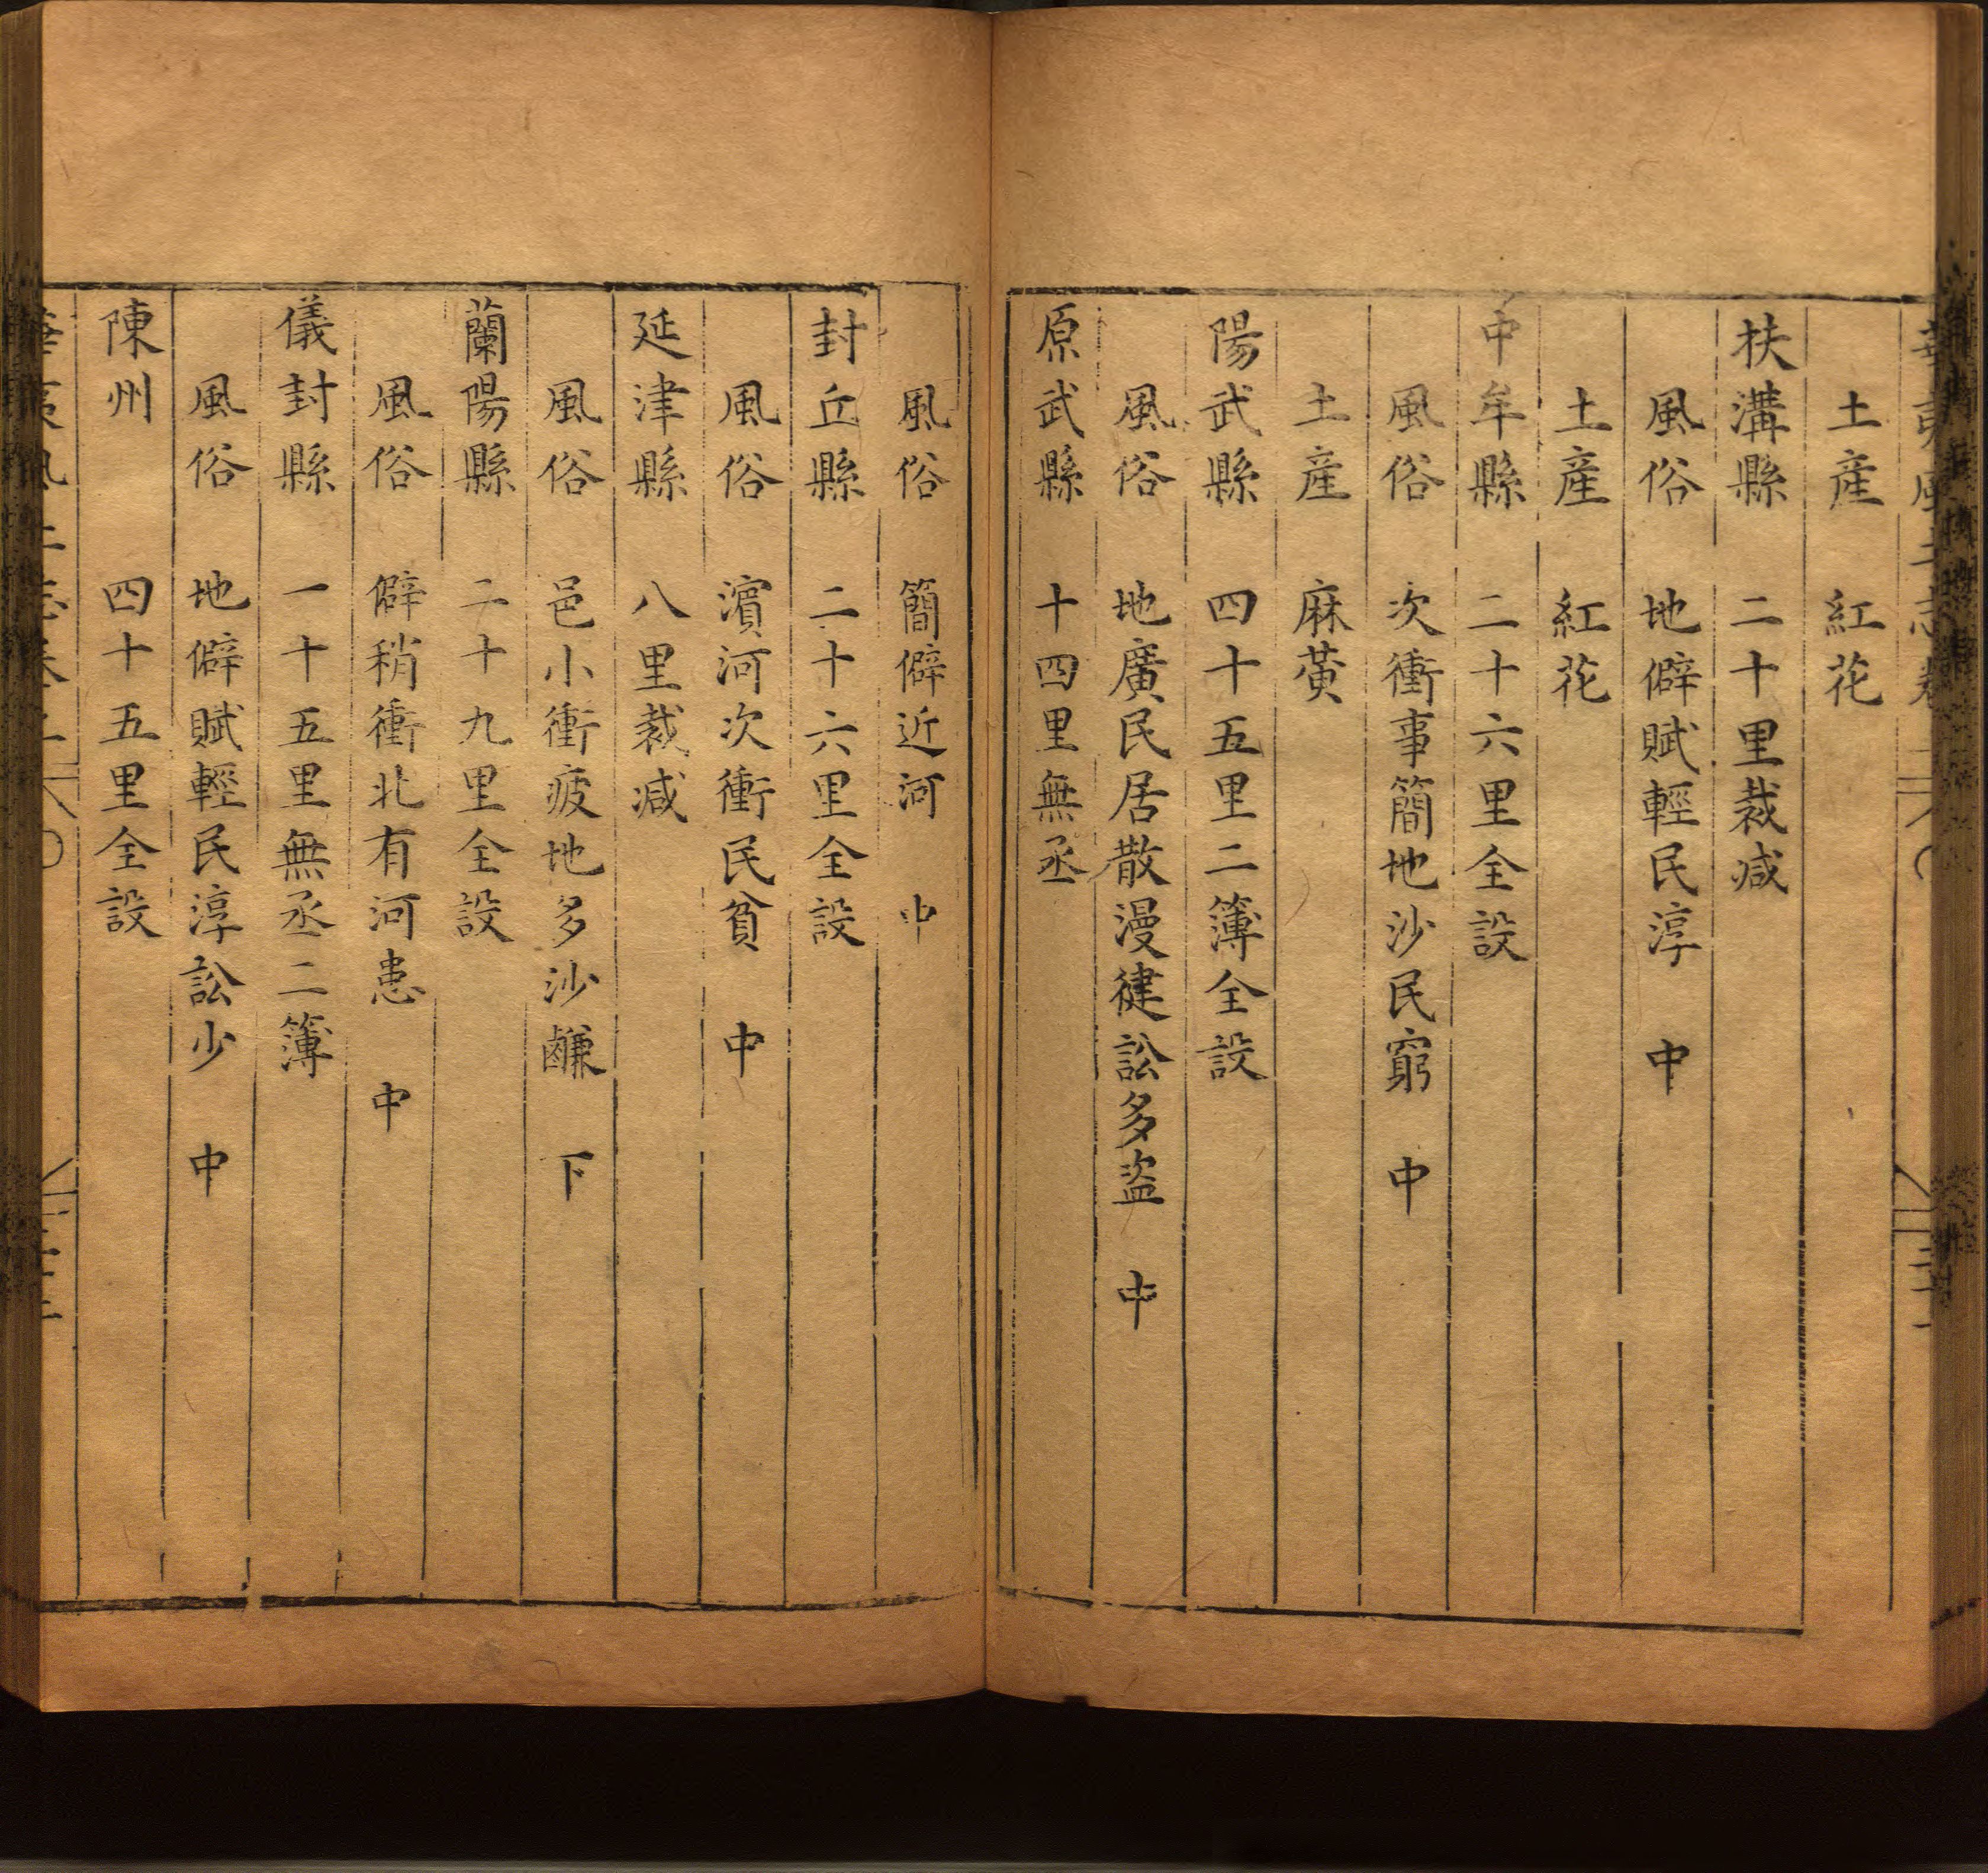 土產 紅花
扶溝縣 二十里裁減
風俗 地僻賦輕民淳 中
土產 紅花
中牟縣 二十六里全設
風俗 次衝事簡地沙民窮 中
土產 麻黄
陽武縣 四十五里二簿全設
風俗 地廣民居散漫健訟多盜 中
原武縣 十四里無丞
風俗 簡僻近河 中
封丘縣 二十六里全設
風俗 濱河次衝民貧 中
延津縣 八里裁減
風俗 邑小衝疲地多沙鹻 下
蘭陽縣 二十九里全設
風俗 僻稍衝北有河患 中
儀封縣 一十五里無丞二簿
風俗 地僻賦輕民淳訟少 中
陳州 四十五里全設